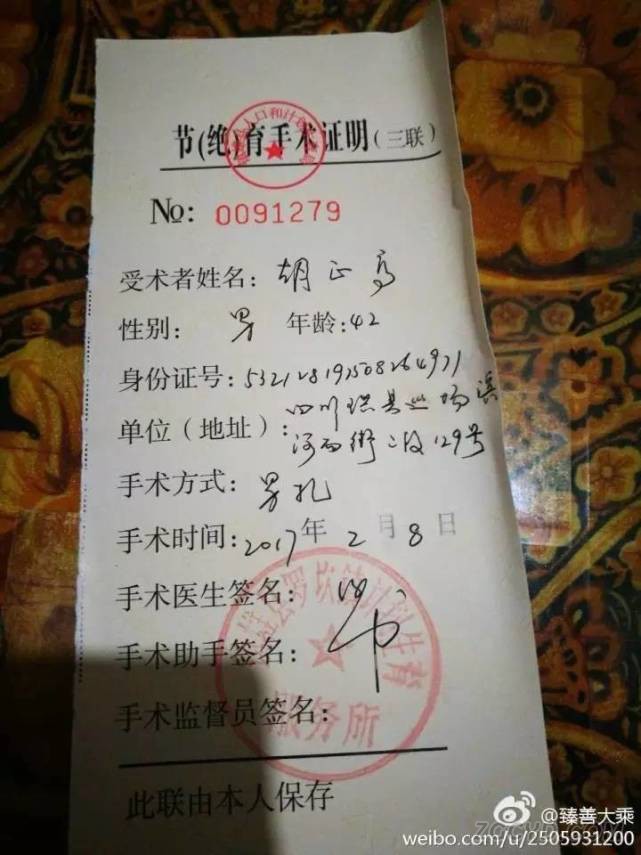 节(绝)育手术证明(三联)
No: 0091279
受术者姓名: 胡正高
性别: 男 年龄: 42
身份证号:
单位(地址): 四川珙县巡场滨
河西街二段129号
手术方式: 男扎
手术时间: 2017年 2 月 8 日
手术医生签名:
手术助手签名:
手术监督员签名:
计划生育
服务所
此联由本人保存
@臻善大乘
weibo.com/u/2505931200